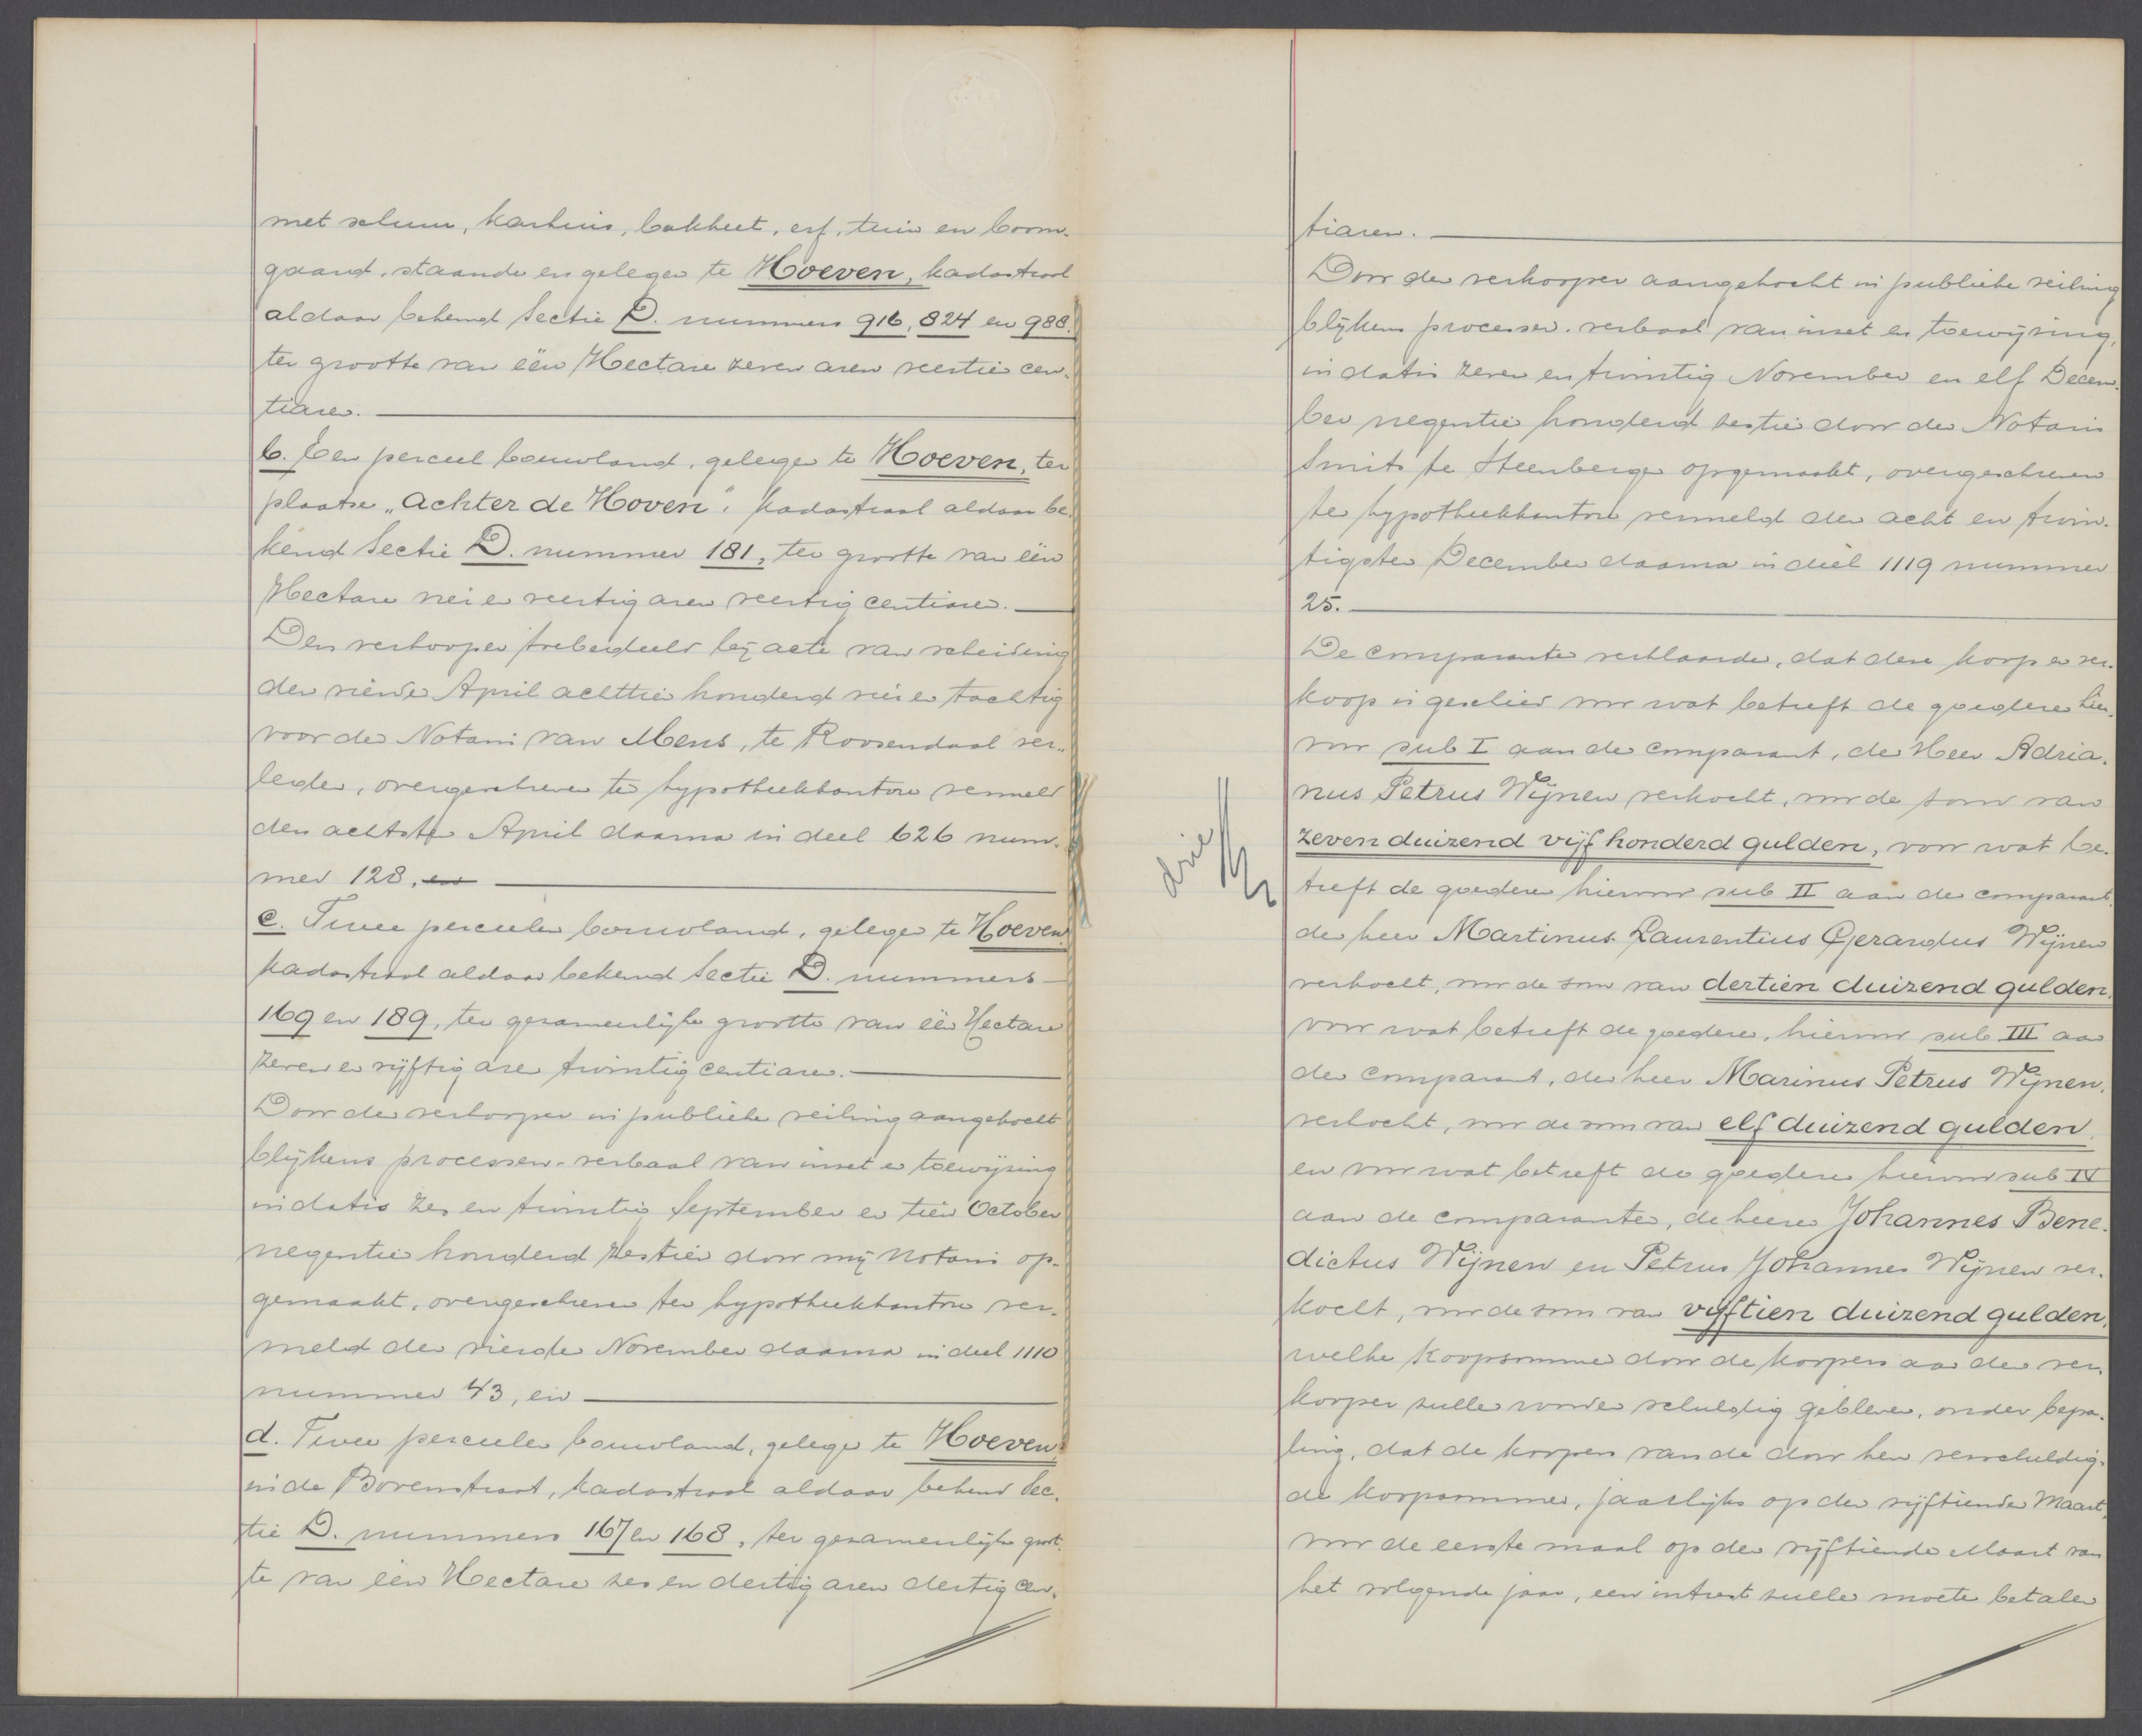 met schuur, karhuis, bakkeet, erf, tuin en boom-
gaard, staande en gelegen te Hoeven, kadastraal
aldaar bekend Sectie D. nummers 916, 824 en 988.
ter grootte van één Hectare zeven aren veertien cen-
tiaren.
b. Een perceel bouwland, gelegen te Hoeven, ter
plaatse „achter de Hoven", kadastraal aldaar be-
kend Sectie D. nummer 181, ter grootte van één
Hectare vier en veertig aren veertig centiaren.
Den verkooper toebedeeld bij acte van scheiding
den vierden April achttien honderd vier en tachtig
voor den Notaris van Mens, te Roosendaal ver-
leden, overgeschreven ten hypotheekkantore vermeld
den achtsten April daarna in deel 626 num-
mer 128, en
c. Twee perceelen bouwland, gelegen te Hoeven,
kadastraal aldaar bekend Sectie D. nummers
169 en 189, ter gezamenlijke grootte van één Hectare
zeven en vijftig aren twintig centiaren.
Door den verkooper in publieke veiling aangekocht
blijkens processen-verbaal van inzet en toewijzing
in datis zes en twintig September en tien October
negentien honderd zestien door mij Notaris op-
gemaakt, overgeschreven ten hypotheekkantore ver-
meld den vierden November daarna in deel 1110
nummer 43, en
d. Twee perceelen bouwland, gelegen te Hoeven,
in de Bovenstraat, kadastraal aldaar bekend Sec-
tie D. nummers 167 en 168, ter gezamenlijke groot-
te van één Hectare zes en dertig aren dertig cen-
tiaren.
Door den verkooper aangekocht in publieke veiling
blijkens processen-verbaal van inzet en toewijzing,
in datis zeven en twintig November en elf Decem-
ber negentien honderd zestien door den Notaris
Smits te Steenbergen opgemaakt, overgeschreven
ten hypotheekkantore vermeld den acht en twin-
tigsten December daarna in deel 1119 nummer
25.
De comparanten verklaarden, dat deze koop en ver-
koop is geschied voor wat betreft de goederen hier-
voor sub I aan den comparant, den Heer Adria-
nus Petrus Wijnen verkocht, voor de som van
zeven duizend vijf honderd gulden, voor wat be-
treft de goederen hiervoor sub II aan den comparant,
den heer Martinus Laurentius Gerardus Wijnen
verkocht, voor de som van dertien duizend gulden,
voor wat betreft de goederen, hiervoor sub III aan
den comparant, den heer Marinus Petrus Wijnen,
verkocht, voor de som van elf duizend gulden,
en voor wat betreft de goederen hiervoor sub IV
aan de comparanten, de heeren Johannes Bene-
dictus Wijnen en Petrus Johannes Wijnen ver-
kocht, voor de som van vijftien duizend gulden,
welke koopsommen door de koopers aan den ver-
kooper zullen worden schuldig gebleven, onder bepa-
ling, dat de koopers van de door hen verschuldig-
de koopsommen, jaarlijks op den vijftienden Maart,
voor de eerste maal op den vijftienden Maart van
het volgende jaar, een intrest zullen moeten betalen
drie